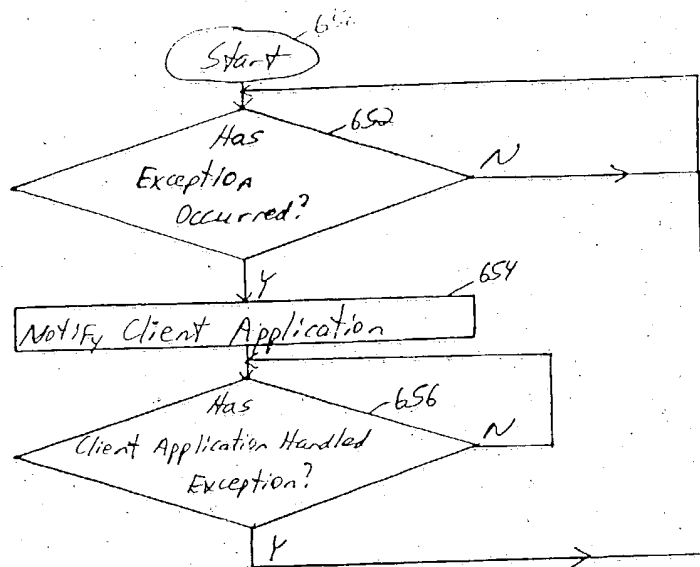 Start
652
Has
Exception
Occurred?
N
Y
654
Notify Client Application
Has
656
Client Application Handled
Exception?
N
Y